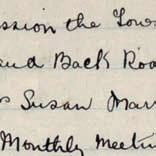 ssion the Tow
and Back Roa
s Susan Mar
Monthly Meetin